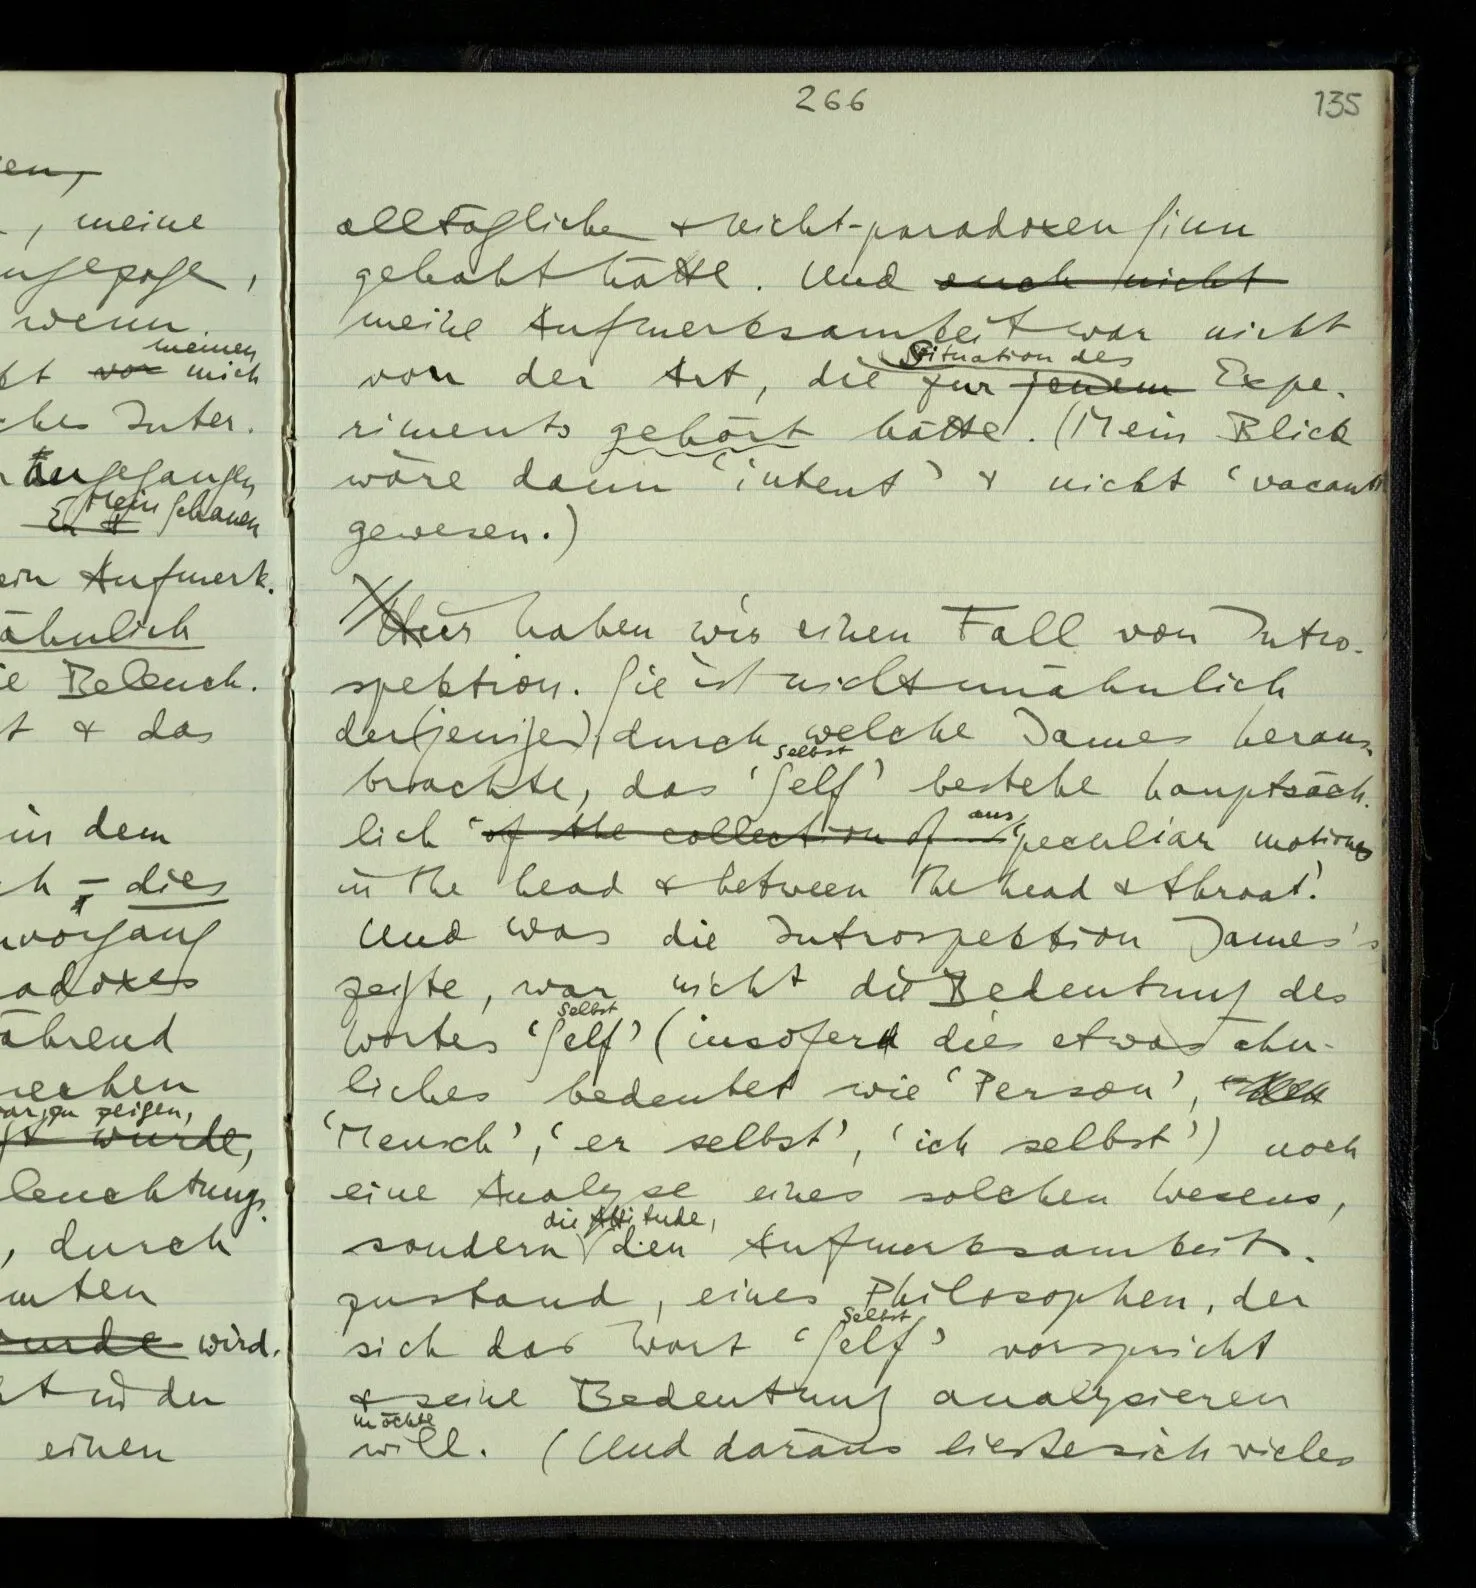 266
135
en,
, meine
wenn.
meinen
vor mich
ches Inter.
angegangen
Mein Schauen
ein Aufmerk.
ähnlich
e Beleuch.
t & das
in dem
h – dies
vorgang
adoxes
ährend
rechen
zu zeigen,
wurde,
leuchtungs
, durch
mten
wurde wird.
in der
einen
alltägliche & nicht-paradoxen Sinn
gehabt hätte. Und auch nicht
meine Aufmerksamkeit war nicht
Situation des
von der Art, die zur jenem Expe-
riments gehört hätte. (Mein Blick
wäre dann 'intent' & nicht 'vacant'
gewesen.)
Hier haben wir einen Fall von Intro-
spektion. Sie ist nicht unähnlich
der(jenigen), durch welche James heraus-
Selbst
brachte, das 'Self' bestehe hauptsäch-
aus
lich 'of the collection of 'peculiar motions
in the head & between the head & throat'.
Und was die Introspektion James's
zeigte, war nicht die Bedeutung des
Selbst
Wortes 'Self' (insofern dies etwas ähn-
liches bedeutet wie 'Person',
'Mensch', 'er selbst', 'ich selbst') noch
eine Analyse eines solchen Wesens,
die Attitude,
sondern den Aufmerksamkeits-
zustand, eines Philosophen, der
Selbst
sich das Wort 'Self' vorspricht
& seine Bedeutung analysieren
möchte
will. (Und daraus ließe sich vieles